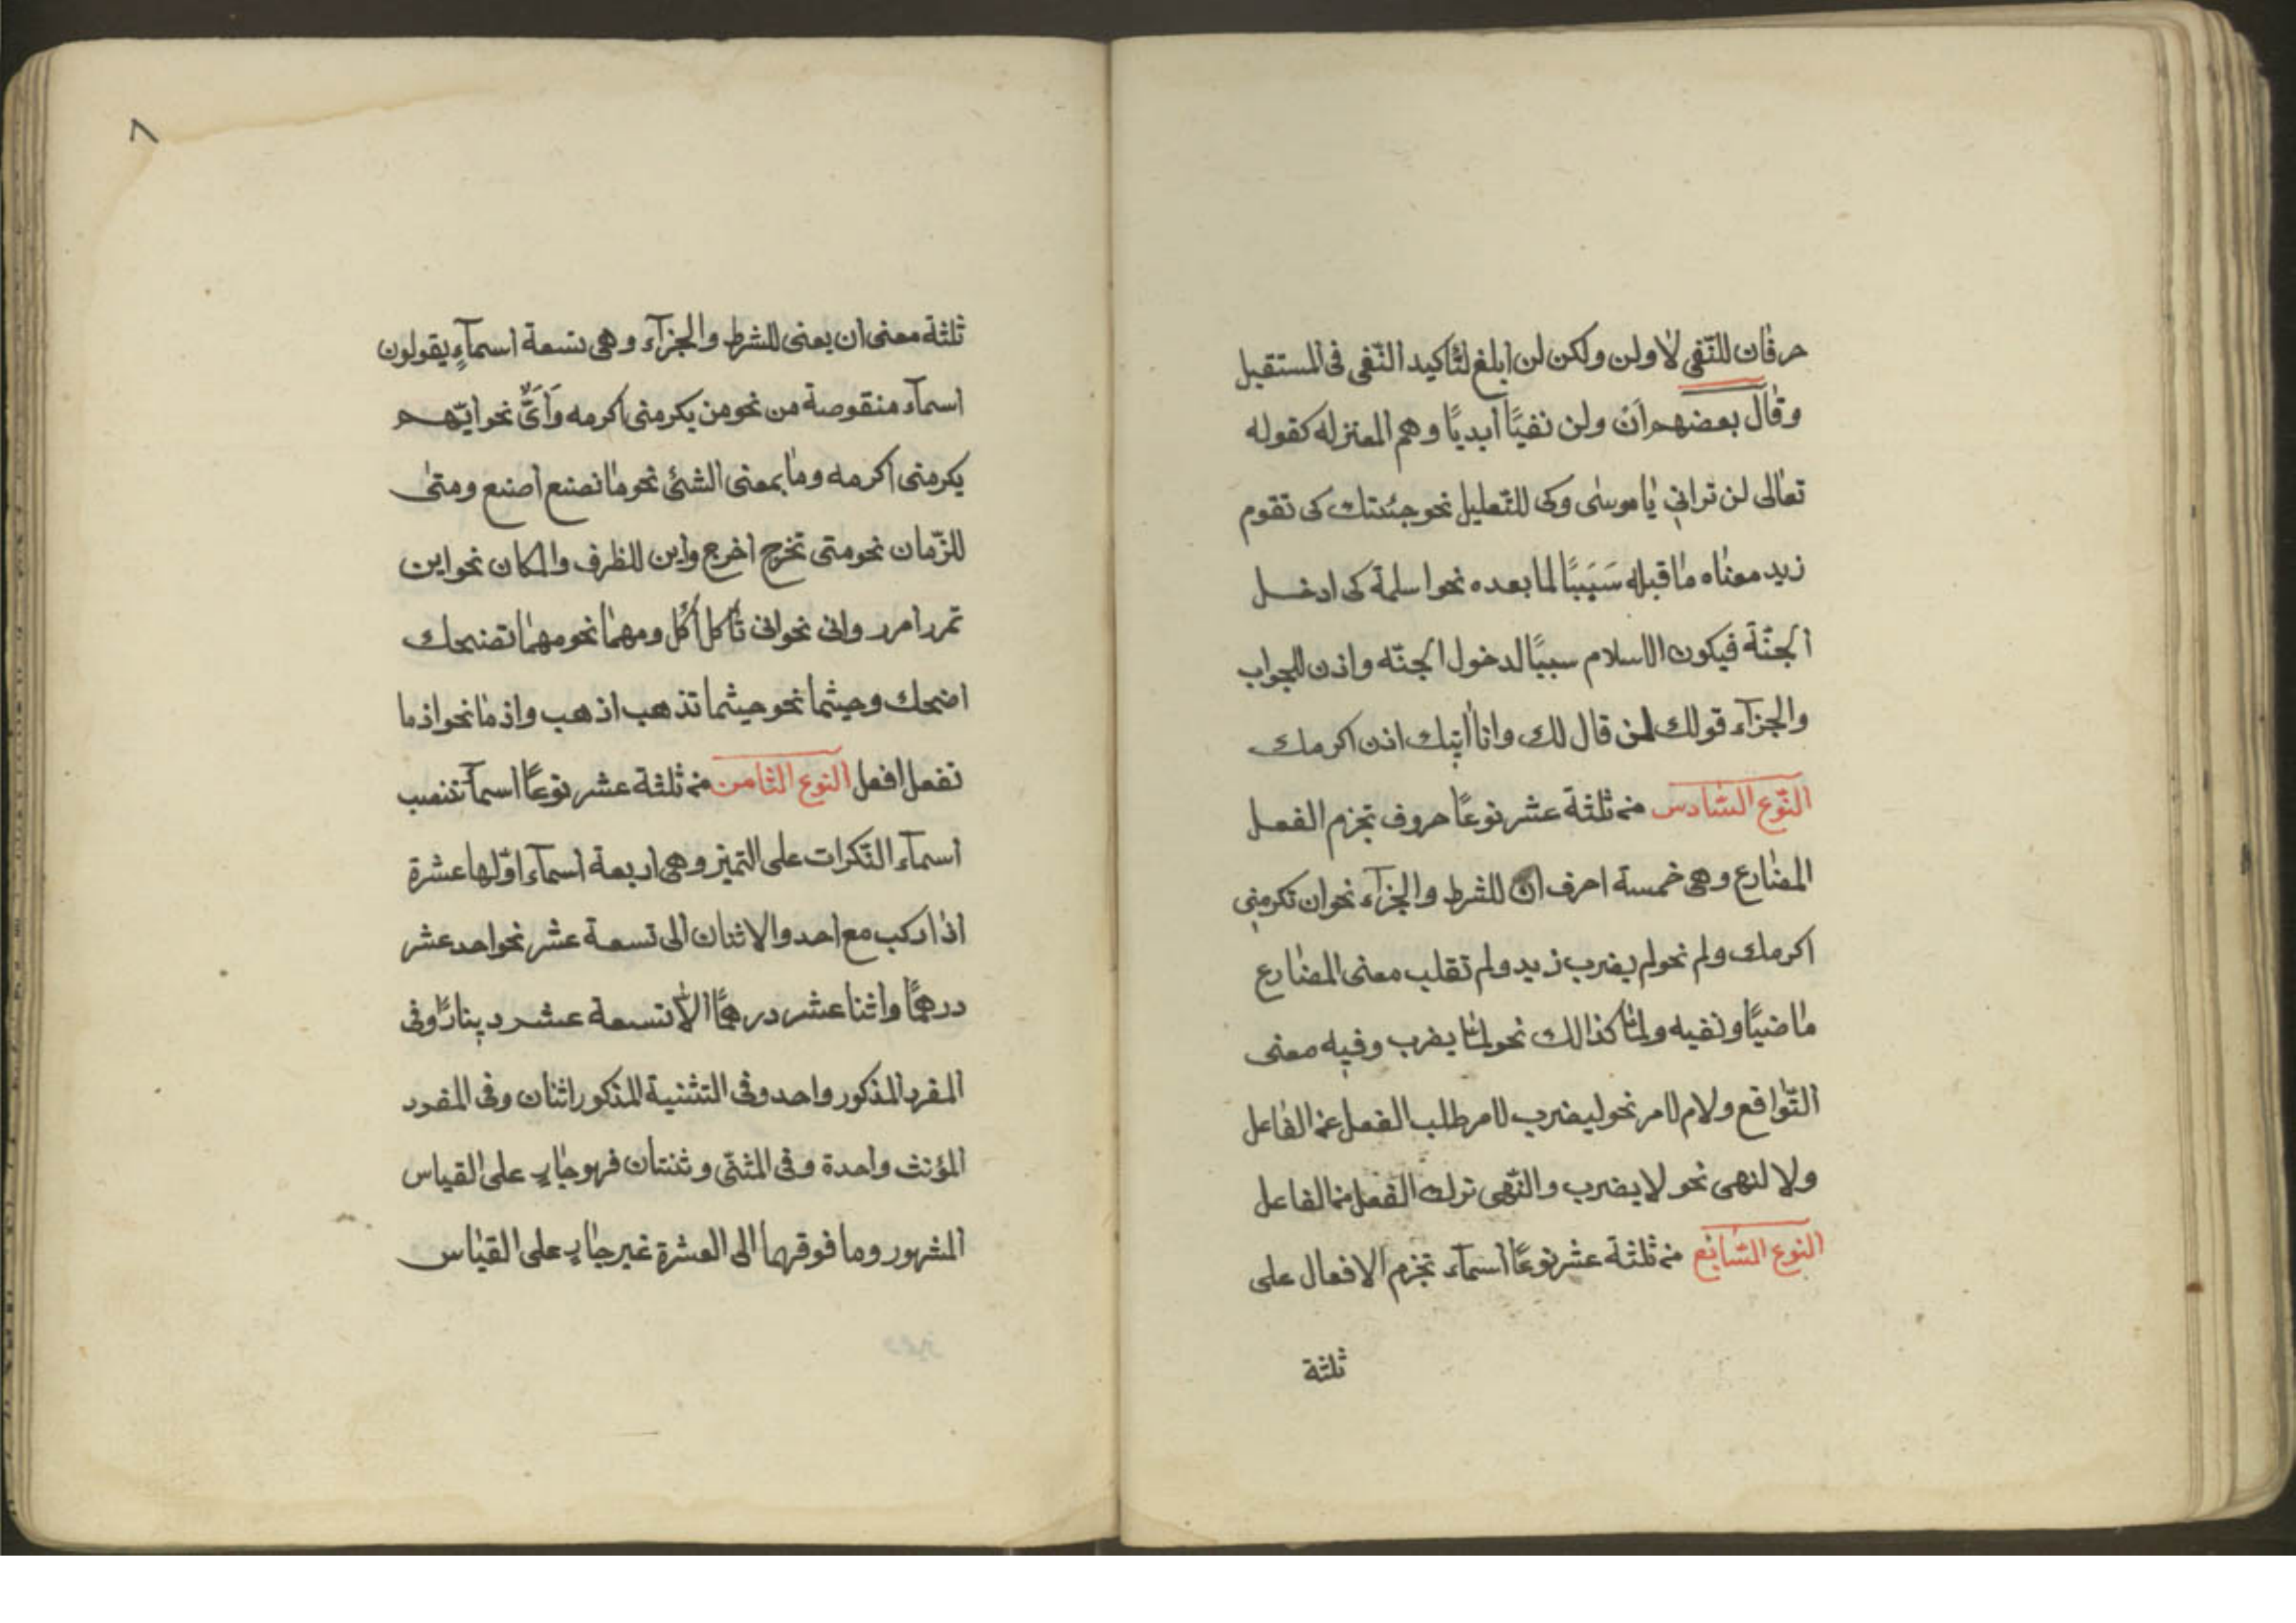 حرفان للنّفى لا ولن ولكن لن ابلغ لتاكيد النّفى فى المستقبل
وقال بعضهم انْ ولن نفيًا ابديًا وهم المعتزله كقوله
تعالى لن ترانى يا موسى وكى للتّعليل نحو جئتك كى تقوم
زيد معناه ما قبله سَبَبًا لما بعده نحو اسلمة كى ادخل
الجنّة فيكون الاسلام سببًا لدخول الجنّه واذن للجواب
والجزآء قولك لمن قال لك وانا اٰتيك اذن اكرمك
النّوع السّادس منه ثلثة عشر نوعًا حروف تجزم الفعل
المضارع وهى خمسة احرف ان للشرط والجزآء نحو ان تكرمنى
اكرمك ولم نحو لم يضرب زيد ولم تقلب معنى المضارع
ماضيًا ونفيه ولمّا كذالك نحو لمّا يضرب وفيه معنى
التّواقع ولام لامر نحو ليضرب لامر طلب الفعل عن الفاعل
ولا لنهى نحو لا يضرب والنّهى ترك الفعل من الفاعل
النوع السّابع منه ثلثة عشر نوعًا اسمآء تجزم الافعال على
ثلثة
٨
ثلثة معنى ان يعنى للشرط والجزآء وهى تسعة اسمآءٍ يقولون
اسمآء منقوصة من نحو من يكرمنى اكرمه وَاَىٌّ نحو ايّهم
يكرمنى اكرمه وما بمعنى الشئ نحو ما تصنع اصنع ومتى
للزّمان نحو متى تخرج اخرج واين للظرف والمكان نحو اين
تمرر امرر وانى نحو انى تأكل أكل ومهما نحو مهما تضحك
اضحك وحيثما نحو حيثما تذهب اذهب واذ ما نحو اذ ما
تفعل افعل النوع الثامن منه ثلثة عشر نوعًا اسمآ تنصب
اسمآء النّكرات على التميز وهى اربعة اسمآء اوّلها عشرة
اذا ركب مع احد والاثنان الى تسعة عشر نحو احد عشر
درهمًا واثنا عشر درهمًا الاّ تسعة عشر دينارًا وفى
المفرد المذكور واحد وفى التثنية المذكور اثنان وفى المفرد
المؤنث واحدة وفى المثنّى وثنتان فهو جار على القياس
المشهور وما فوقهما الى العشرة غير جار على القياس